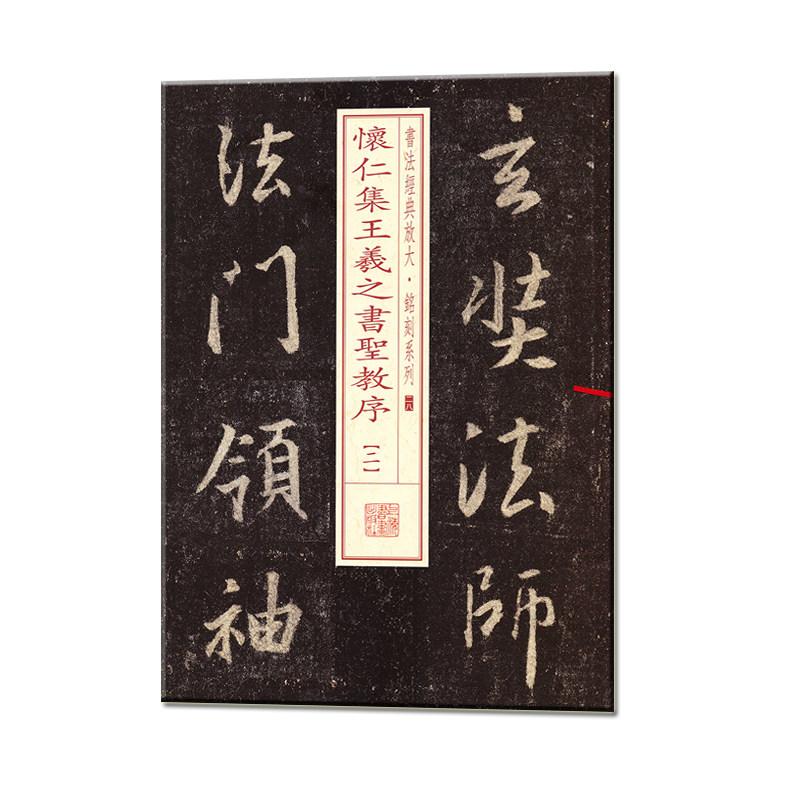 玄奘法師
書法經典放大·銘刻系列
二八
懷仁集王羲之書聖教序【二】
法門領袖